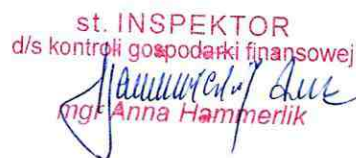 st. INSPEKTOR
d/s kontroli gospodarki finansowej
mgr Anna Hammerlik